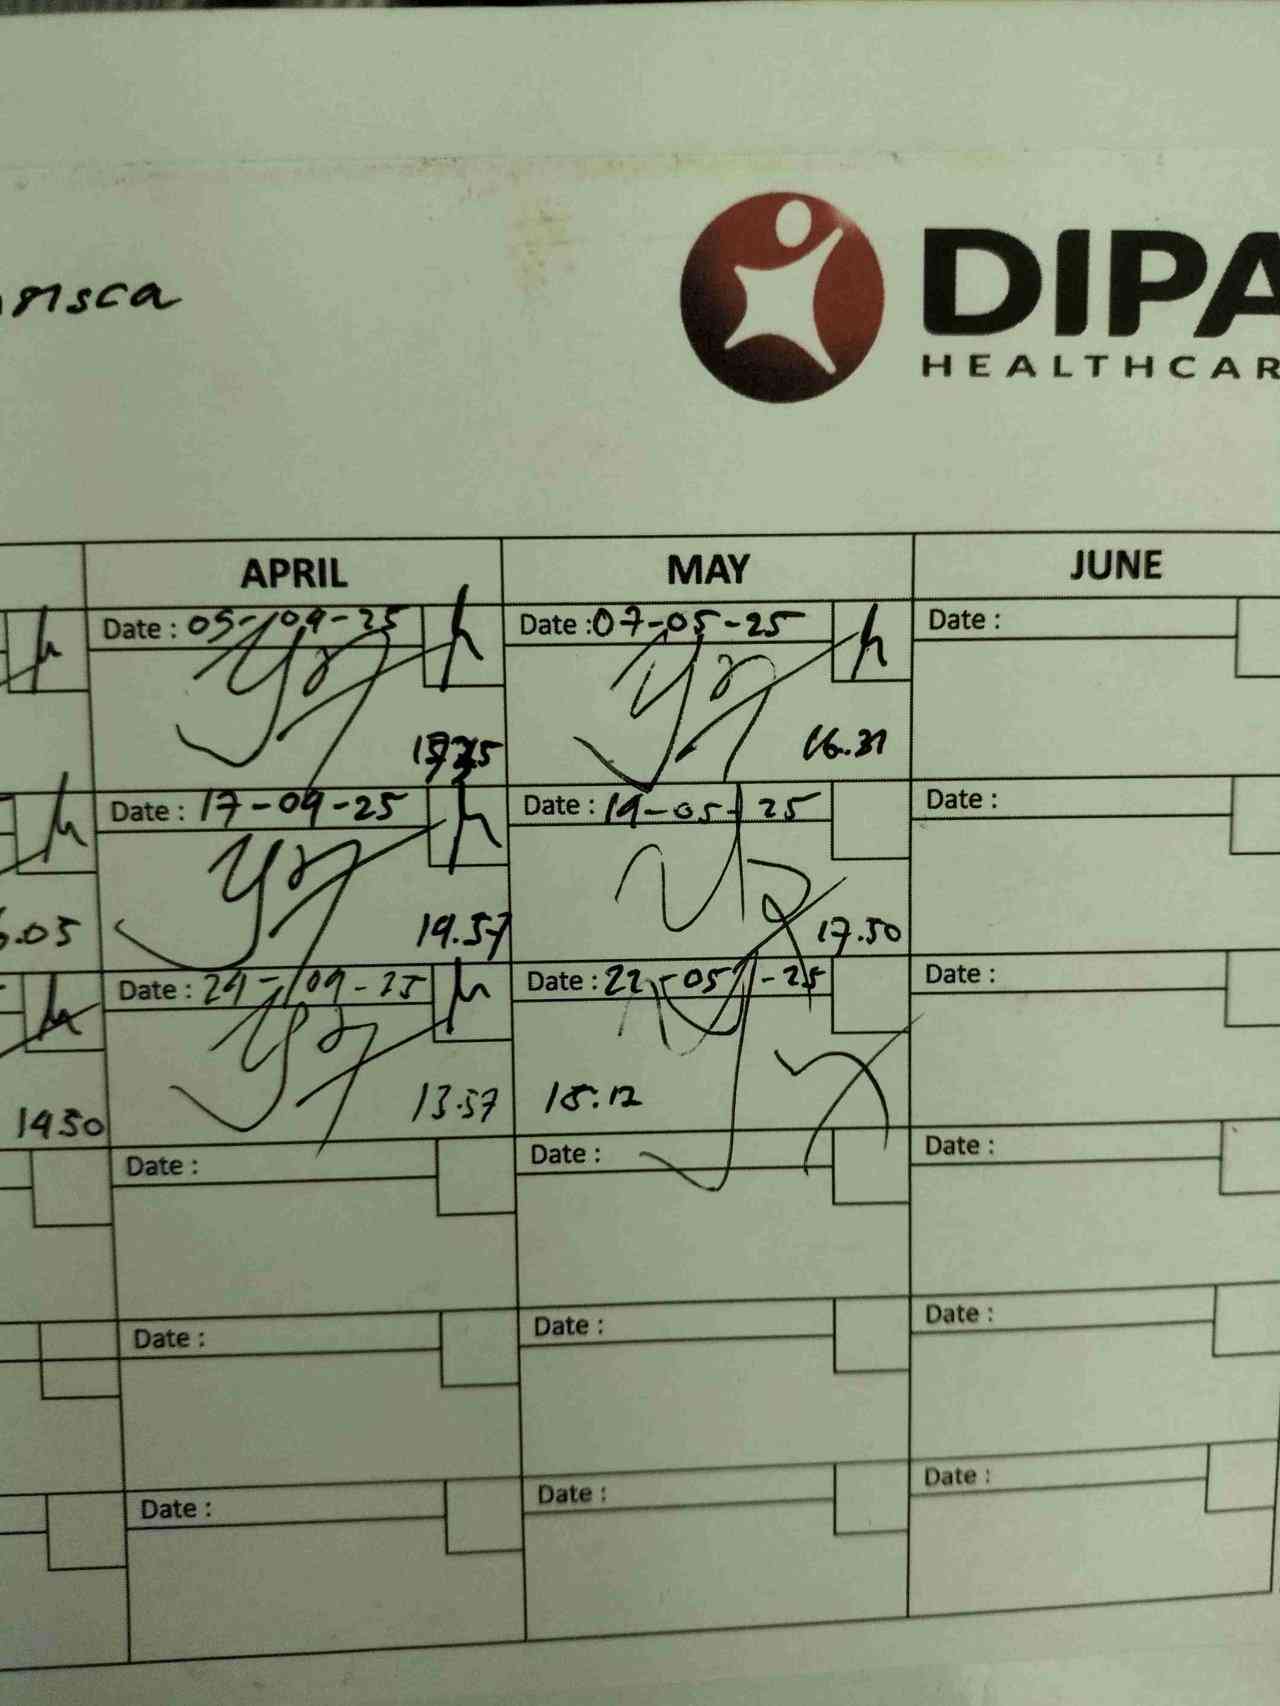 DIPA
HEALTHCAR
APRIL MAY JUNE
Date : 05-04-25 Date : 07-05-25 Date :
16.31
Date : 17-04-25 Date : 14-05-25 Date :
6.05 14.57 17.50
Date : 24-04-25 Date : 22-05-25 Date :
1450 13.57 15.12
Date : Date : Date :
Date : Date : Date :
Date : Date : Date :